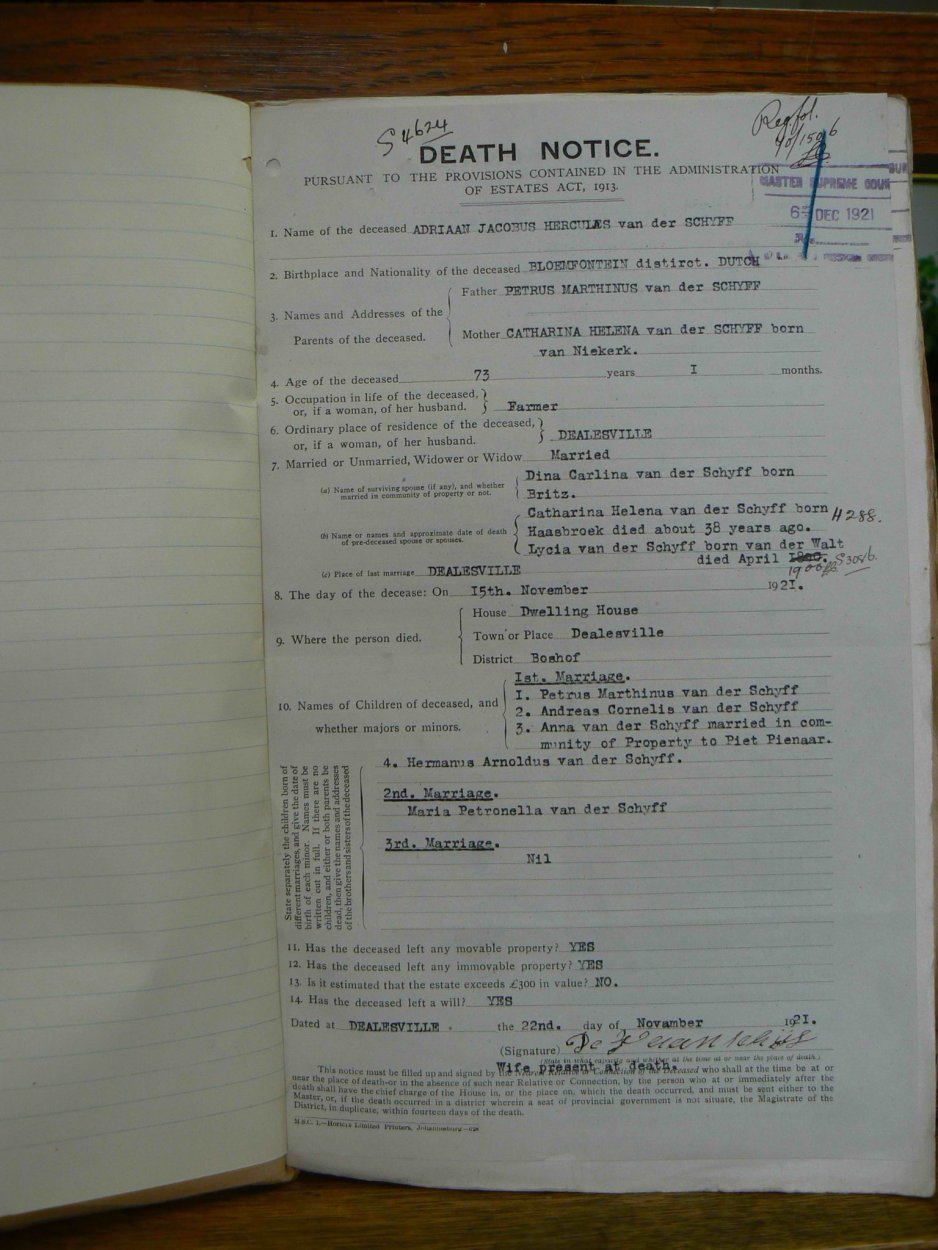 S 4624
Reg fol.
DEATH NOTICE.
PURSUANT TO THE PROVISIONS CONTAINED IN THE ADMINISTRATION
OF ESTATES ACT, 1913.
MASTER SUPREME COUR
6 DEC 1921
1. Name of the deceased ADRIAAN JACOBUS HERCULAS van der SCHYFF
2. Birthplace and Nationality of the deceased BLOEMFONTEIN distirct. DUTCH
Father PETRUS MARTHINUS van der SCHYFF
3. Names and Addresses of the
Parents of the deceased.
Mother CATHARINA HELENA van der SCHYFF born
van Niekerk.
4. Age of the deceased 73 years I months.
5. Occupation in life of the deceased,
or, if a woman, of her husband. Farmer
6. Ordinary place of residence of the deceased,
or, if a woman, of her husband. DEALESVILLE
7. Married or Unmarried, Widower or Widow Married
(a) Name of surviving spouse (if any), and whether
married in community of property or not.
Dina Carlina van der Schyff born
Britz.
(b) Name or names and approximate date of death
of pre-deceased spouse or spouses.
Catharina Helena van der Schyff born H 288.
Haasbroek died about 38 years ago.
Lycia van der Schyff born van der Walt
died April 1900
(c) Place of last marriage DEALESVILLE
8. The day of the decease: On I5th. November 192I.
9. Where the person died.
House Dwelling House
Town or Place Dealesville
District Boshof
10. Names of Children of deceased, and
whether majors or minors.
Ist. Marriage.
I. Petrus Marthinus van der Schyff
2. Andreas Cornelis van der Schyff
3. Anna van der Schyff married in com-
munity of Property to Piet Pienaar.
4. Hermanus Arnoldus van der Schyff.
State separately the children born of
different marriages, and give the date of
birth of each minor. Names must be
written out in full. If there are no
children, and either or both parents be
dead, then give the names and addresses
of the brothers and sisters of the deceased
2nd. Marriage.
Maria Petronella van der Schyff
3rd. Marriage.
Nil
11. Has the deceased left any movable property? YES
12. Has the deceased left any immovable property? YES
13. Is it estimated that the estate exceeds £300 in value? NO.
14. Has the deceased left a will? YES
Dated at DEALESVILLE. the 22nd. day of Novamber 192I.
(Signature)
(State in what capacity and whether at the time at or near the place of death.)
Wife present at death.
This notice must be filled up and signed by the Nearest Relative or Connection of the Deceased who shall at the time be at or
near the place of death—or in the absence of such near Relative or Connection, by the person who at or immediately after the
death shall have the chief charge of the House in, or the place on, which the death occurred, and must be sent either to the
Master, or, if the death occurred in a district wherein a seat of provincial government is not situate, the Magistrate of the
District, in duplicate, within fourteen days of the death.
Limited Printers, Johannesburg